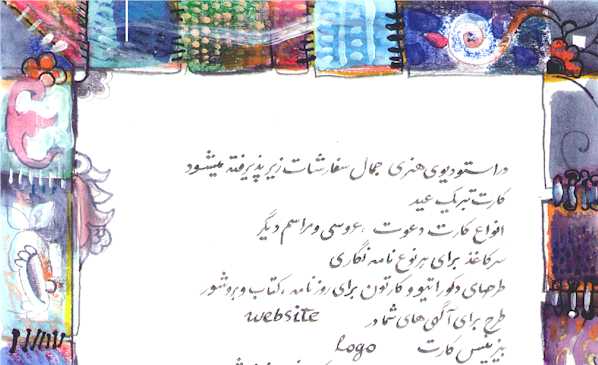 در استودیوی هنری جمال سفارشات زیر پذیرفته میشود
کارت تبریک عید
انواع کارت دعوت ،عروسی و مراسم دیگر
سرکاغذ برای هر نوع نامه نگاری
طرحهای دکوراتیو و کارتون برای روزنامه ،کتاب و بروشور
طرح برای آگهی های شما در website
بیزنیس کارت logo